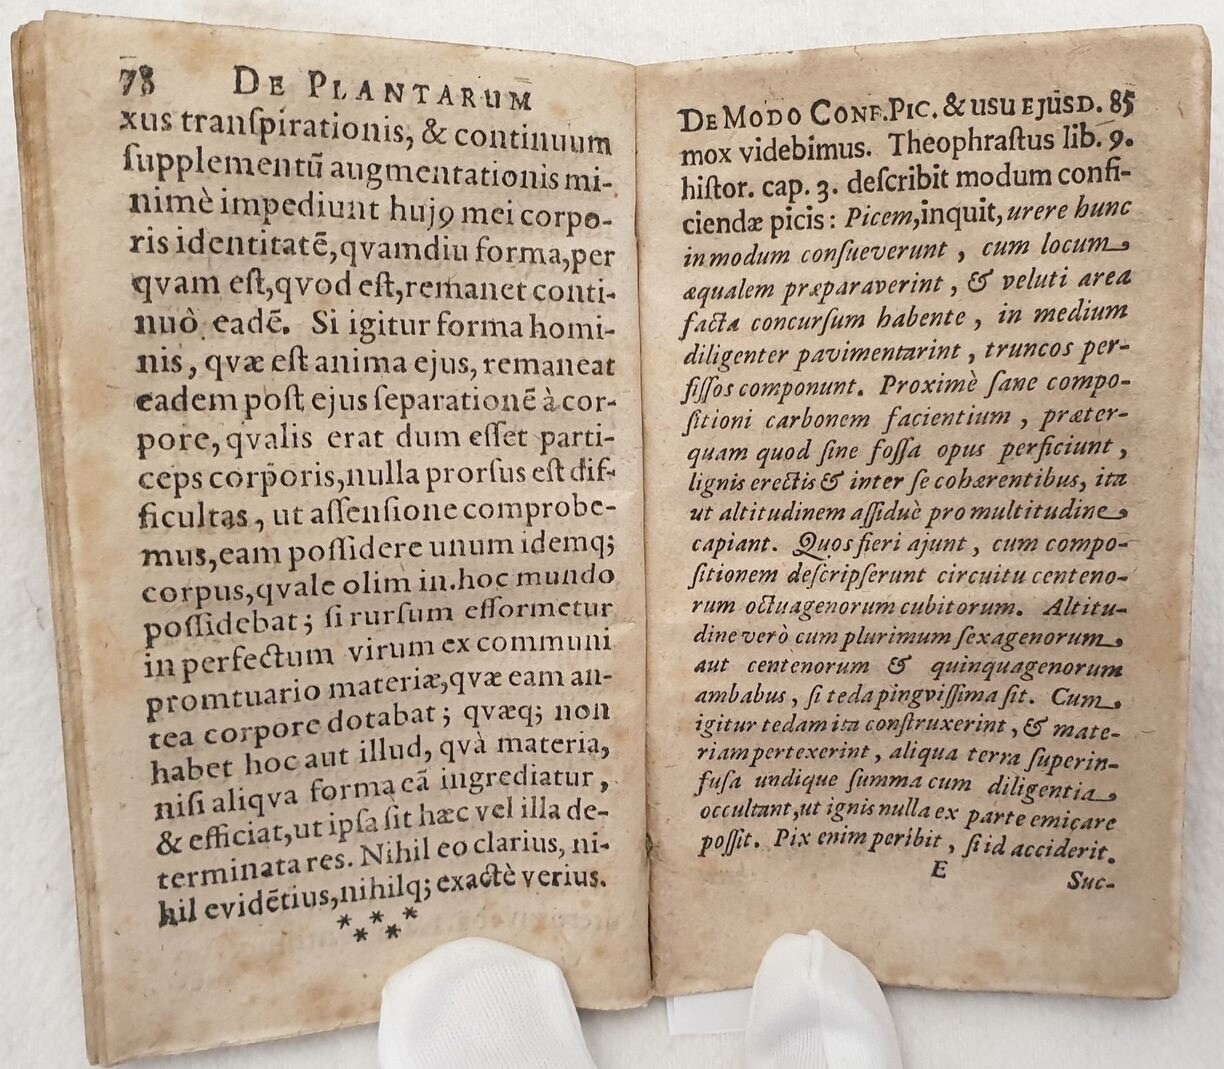 78 DE PLANTARUM
xus tranſpirationis, & continuum
ſupplementũ augmentationis mi-
nimè impediunt hujꝰ mei corpo-
ris identitatẽ, qvamdiu forma, per
qvam eſt, qvod eſt, remanet conti-
nuò eadẽ. Si igitur forma homi-
nis, qvæ eſt anima ejus, remaneat
eadem poſt ejus ſeparationẽ à cor-
pore, qvalis erat dum eſſet parti-
ceps corporis, nulla prorſus eſt dif-
ficultas, ut aſſenſione comprobe-
mus, eam poſſidere unum idemq;
corpus, qvale olim in hoc mundo
poſſidebat; ſi rurſum efformetur
in perfectum virum ex communi
promtuario materiæ, qvæ eam an-
tea corpore dotabat; qvæq; non
habet hoc aut illud, qvà materia,
niſi aliqva forma eã ingrediatur,
& efficiat, ut ipſa ſit hæc vel illa de-
terminata res. Nihil eo clarius, ni-
hil evidẽtius, nihilq; exactè verius.
* * *
* *
DE MODO CONF. PIC. & usu EJUSD. 85
mox videbimus. Theophraſtus lib. 9.
hiſtor. cap. 3. deſcribit modum confi-
ciendæ picis: Picem, inquit, urere hunc
in modum conſueverunt, cum locum
æqualem præparaverint, & veluti area
facta concurſum habente, in medium
diligenter pavimentarint, truncos per-
fiſſos componunt. Proximè ſane compo-
ſitioni carbonem facientium, præter-
quam quod ſine foſſa opus perficiunt,
lignis erectis & inter ſe cohærentibus, ita
ut altitudinem aſſiduè pro multitudine
capiant. Quos fieri ajunt, cum compo-
ſitionem deſcripſerunt circuitu centeno-
rum octuagenorum cubitorum. Altitu-
dine verò cum plurimum ſexagenorum,
aut centenorum & quinquagenorum
ambabus, ſi teda pingviſſima ſit. Cum
igitur tedam ita conſtruxerint, & mate-
riam pertexerint, aliqua terra ſuperin-
fuſa undique ſumma cum diligentia
occultant, ut ignis nulla ex parte emicare
poſſit. Pix enim peribit, ſi id acciderit.
E
Suc-